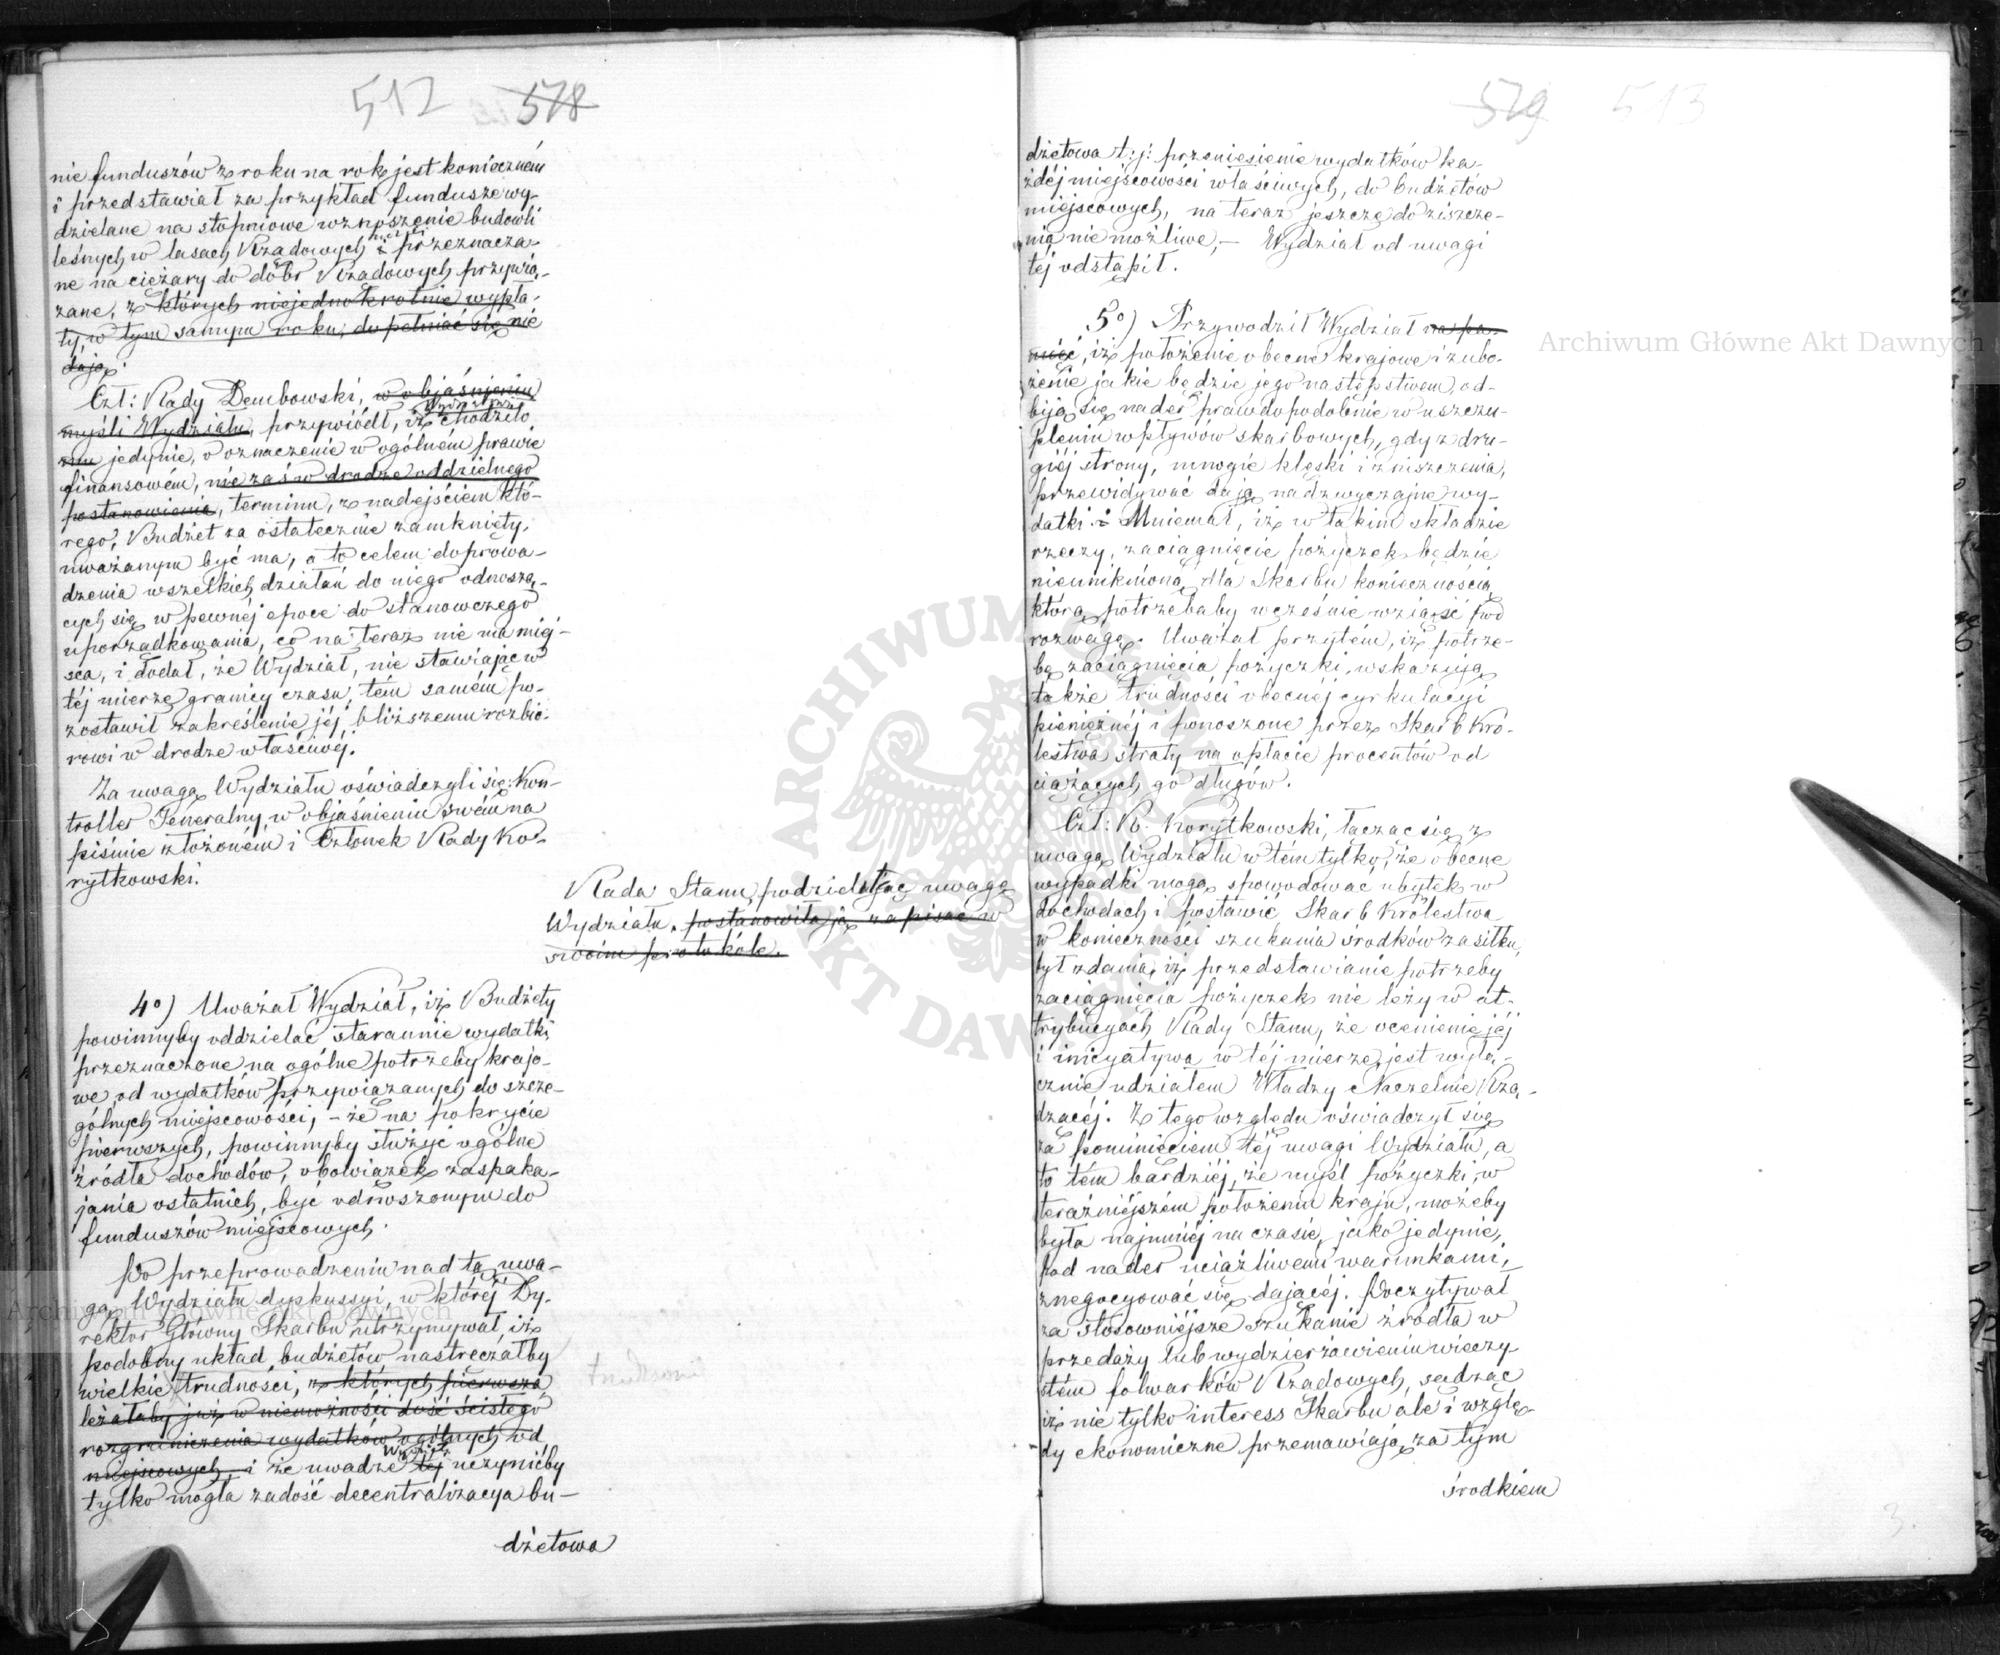 512 578
nie funduszów z roku na rok jest konieczném
i przedstawiał za przykład fundusze wy-
dzielane na stopniowe wznoszenie budowli
leśnych w lasach Rządowych i przeznacza-
ne na ciężary do dóbr Rządowych przywią-
zane, z których niejednokrotnie wypła-
ty, w tym samym roku, dopełniać się nie
dają.
Czł: Rady Dembowski, w objaśnieniu
myśli Wydziału, przywiódł, iż Wydziałowi chodziło
mu jedynie, o oznaczenie w ogólnem prawie
finansowém, nie zaś w drodze oddzielnego
postanowienia, terminu, z nadejściem któ-
rego, Budżet za ostatecznie zamknięty,
uważanym być ma, a to celem doprowa-
dzenia wszelkich działań do niego odnoszą-
cych się w pewnéj epoce do stanowczego
uporządkowania, co na teraz nie ma miej-
sca, i dodał, że Wydział, nie stawiając w
téj mierze granicy czasu, tém samém po-
zostawił zakreślenie jéj bliższemu rozbio-
rowi w drodze właściwéj.
Za uwagą Wydziału oświadczyli się: Kon-
troller Jeneralny, w objaśnieniu swém na
piśmie złożoném i Członek Rady Ko-
rytkowski.
Rada Stanu, podzielając uwagę
Wydziału, postanowiła ją zapisać w
swoim protokóle.
4o) Uważał Wydział, iż Budżety
powinnyby oddzielać starannie wydatki,
przeznaczone na ogólne potrzeby krajo-
we, od wydatków przywiązanych do szcze-
gólnych miejscowości, – że na pokrycie
pierwszych, powinnyby służyć ogólne
źródła dochodów, obowiązek zaspaka-
jania ostatnich, być odnoszonym do
funduszów miejscowych.
Po przeprowadzeniu nad tą uwa-
gą Wydziału dyskussyi, w któréj Dy-
rektor Główny Skarbu utrzymywał, iż
podobny układ budżetów nastręczałby
wielkie trudności, z których pierwsza
leżałaby już w niemożności dość ścisłego
rozgraniczenia wydatków ogólnych od
miejscowych, i że uwadze téj uczynićby
tylko mogła zadość decentralizacya bu-
dżetowa
579 513
dżetowa t: j: przeniesienie wydatków ka-
żdéj miejscowości właściwych, do budżetów
miejscowych, na teraz jeszcze do ziszcze-
nia nie możliwe, – Wydział od uwagi
téj odstąpił.
5o) Przywodził Wydział na pa-
mięć, iż położenie obecne krajowe i zubo-
żenie jakie będzie jego następstwem, od-
biją się nader prawdopodobnie w uszczu-
pleniu wpływów skarbowych, gdy z dru-
giéj strony, mnogie klęski i zniszczenia,
przewidywać dają nadzwyczajne wy-
datki. i Mniemał, iż w takim składzie
rzeczy, zaciągnięcie pożyczek będzie
nieuniknioną dla Skarbu koniecznością,
którą potrzebaby wcześnie wziąść pod
rozwagę. Uważał przytém, iż potrze-
bę zaciągnięcia pożyczki, wskazują
także trudności obecnéj cyrkulacyi
pieniężnéj i ponoszone przez Skarb Kró-
lestwa straty na opłacie procentów od
ciążących go długów.
Czł: R. Korytkowski, łącząc się z
uwagą Wydziału w tém tylko, że obecne
wypadki mogą spowodować ubytek w
dochodach i postawić Skarb Królestwa
w konieczności szukania środków zasiłku,
był zdania, iż przedstawianie potrzeby
zaciągnięcia pożyczek nie leży w at-
trybucyach Rady Stanu, że ocenienie jéj
i inicyatywa w téj mierze, jest wyłą-
cznie udziałem Władzy Naczelnie Rzą-
dzacéj. Z tego względu oświadczył się
za pominięciem téj uwagi Wydziału, a
to tém bardziéj, że myśl pożyczki, w
teraźniejszém położeniu kraju, możeby
była najmniéj na czasie, jako jedynie,
pod nader uciążliwemi warunkami,
znegocyować się dającéj. Poczytywał
za stosowniejsze szukanie źródła w
przedaży lub wydzierżawieniu wieczy
stém folwarków Rządowych, sądząc
iż nie tylko interess Skarbu ale i wzglę-
dy ekonomiczne przemawiają za tym
środkiem
3.
Archiwum Główne Akt Dawnych
Archiwum Główne Akt Dawnych
ARCHIWUM GŁÓWNE AKT DAWNYCH